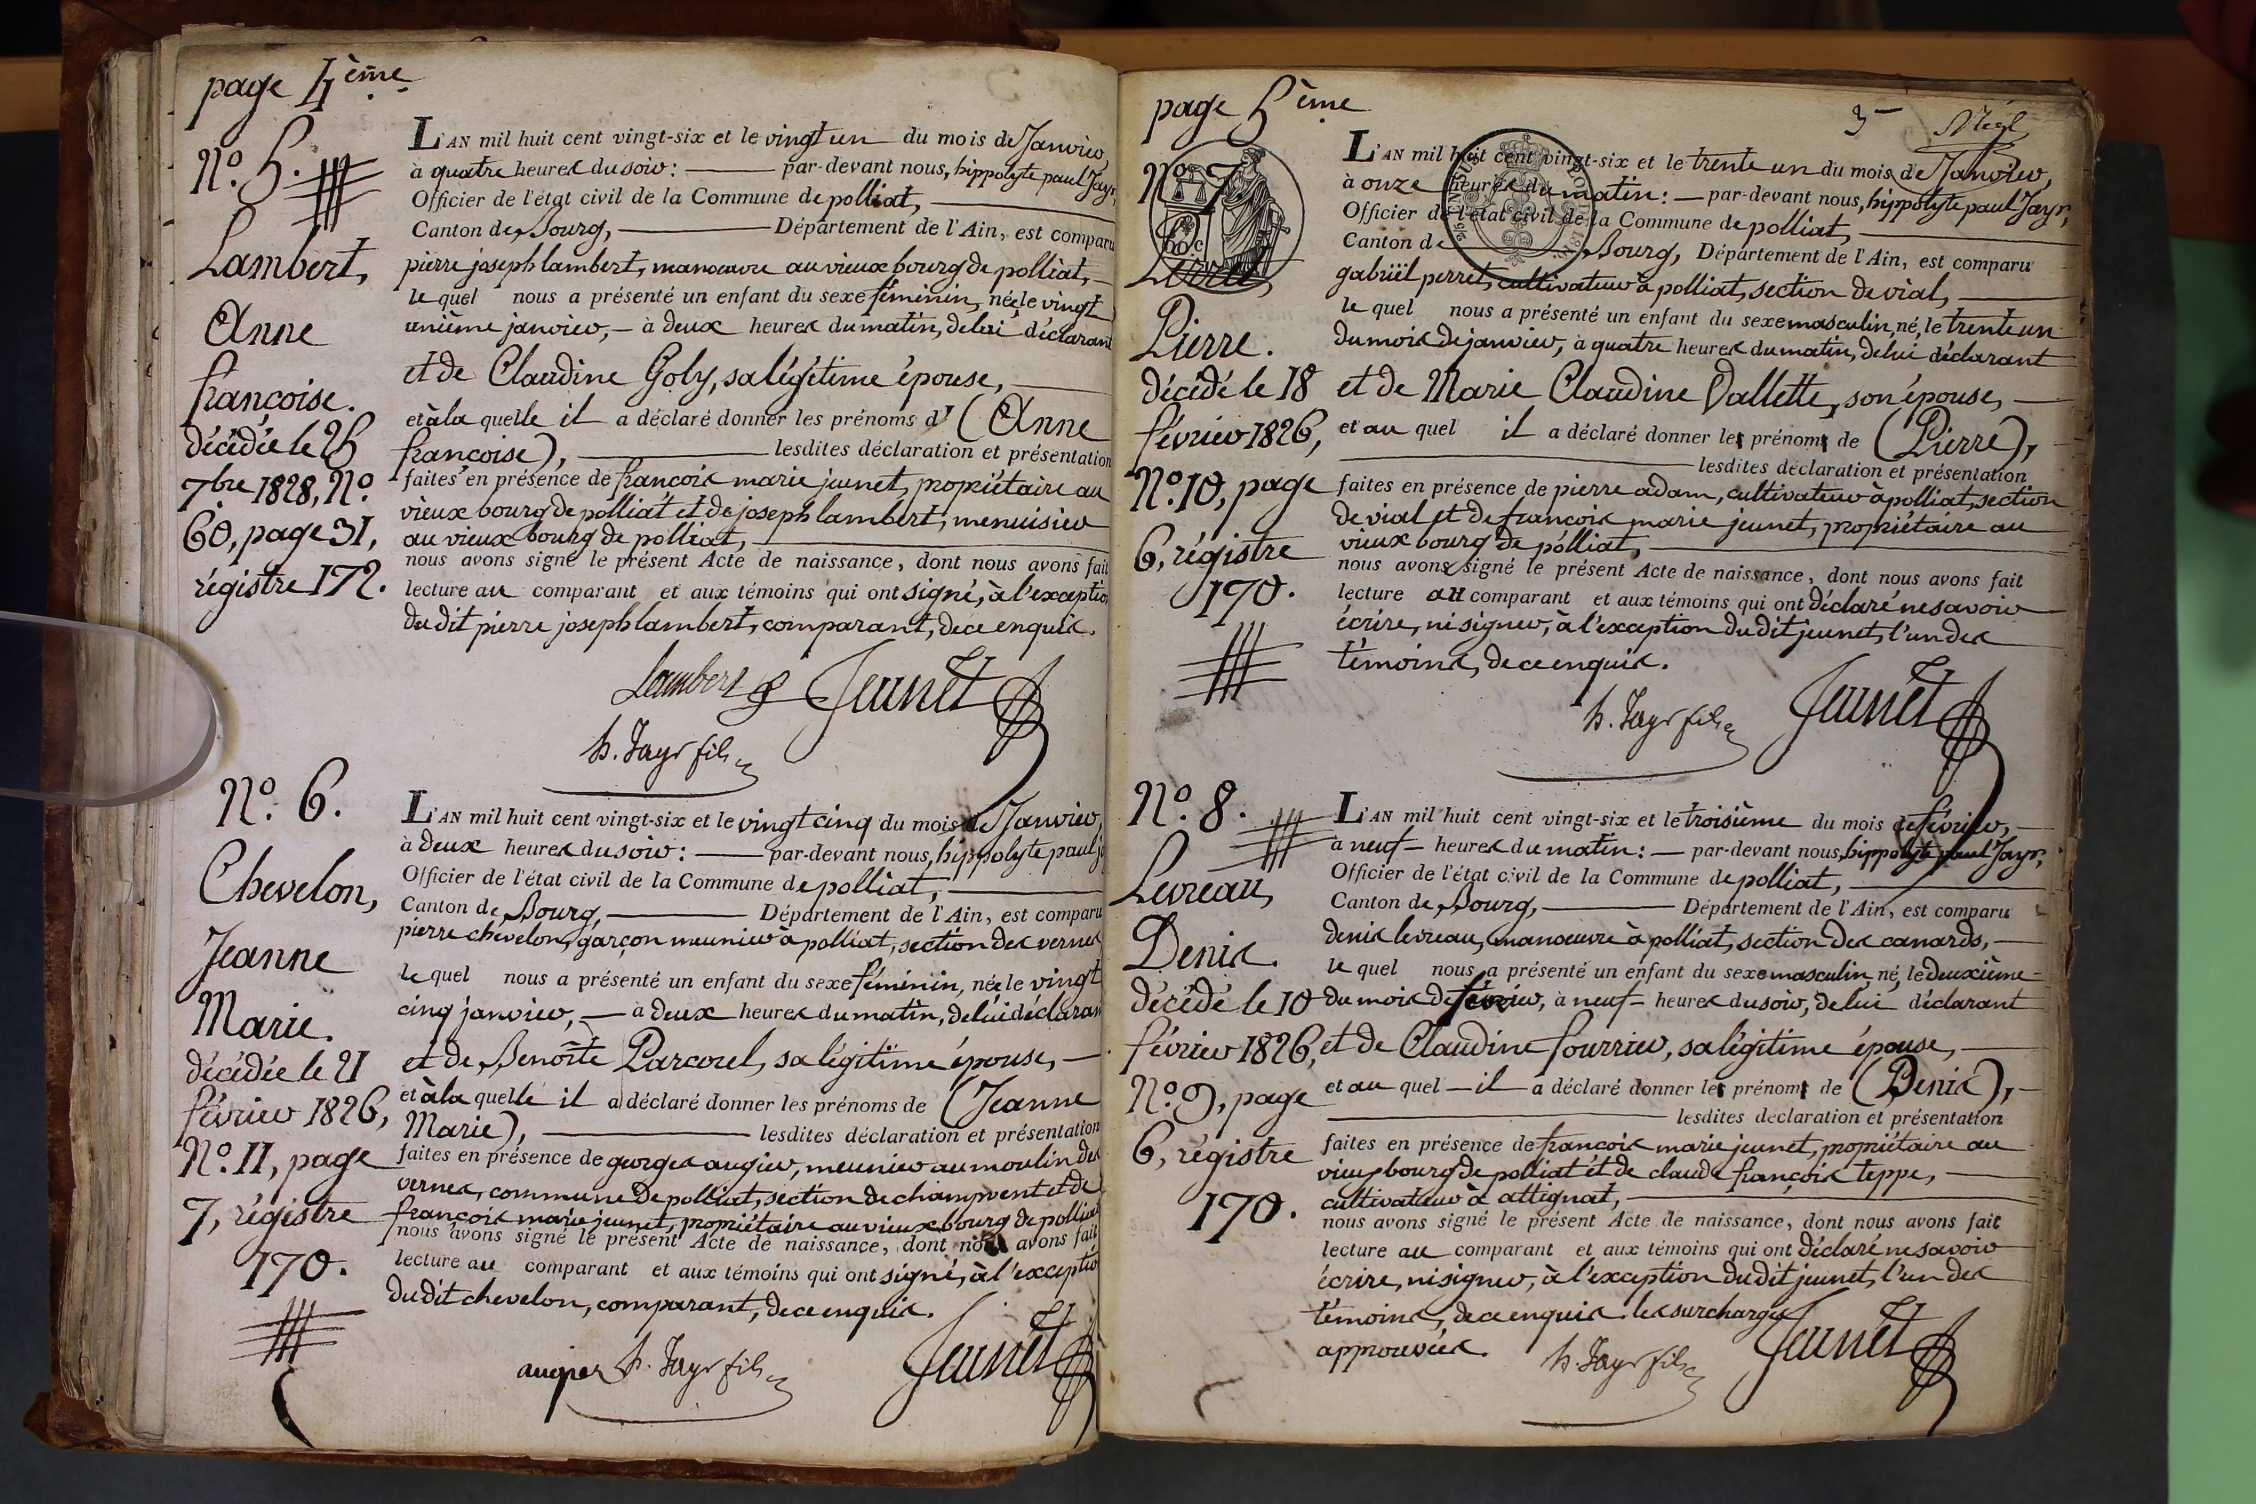 page 4ème
N.º 5.
Lambert,
Anne
françoise.
décédée le 25
7bre 1828, N.º
60, page 31,
régistre 172.
L'AN mil huit cent vingt-six et le vingt un du mois de Janvier,
à quatre heures du soir : par-devant nous, hippolyte paul Jayr,
Officier de l'état civil de la Commune de polliat,
Canton de Bourg, Département de l'Ain, est comparu
pierre joseph lambert, manoeuvre au vieux bourg de polliat,
le quel nous a présenté un enfant du sexe féminin, née le vingt
unième janvier, à deux heures du matin, de lui déclarant
et de Claudine Goly, sa légitime épouse,
et à la quelle il a déclaré donner les prénoms d' (Anne
françoise), lesdites déclaration et présentation
faites en présence de françois marie jeunet, propriétaire au
vieux bourg de polliat et de joseph lambert, menuisier
au vieux bourg de polliat,
nous avons signé le présent Acte de naissance, dont nous avons fait
lecture au comparant et aux témoins qui ont signé, à l'exception
du dit pierre joseph lambert, comparant, de ce enquis.
Lambert Jeunet
h. Jayr fils
N.º 6.
Chevelon,
Jeanne
Marie.
décédée le 21
février 1826,
N.º 11, page
7, régistre
170.
L'AN mil huit cent vingt-six et le vingt cinq du mois de Janvier
à deux heures du soir : par-devant nous, hippolyte paul
Officier de l'état civil de la Commune de polliat,
Canton de Bourg, Département de l'Ain, est comparu
pierre chevelon, garçon meunier à polliat, section des vernes
le quel nous a présenté un enfant du sexe féminin, née le vingt
cinq janvier, à deux heures du matin, de lui déclarant
et de Benoîte Parcorel, sa légitime épouse,
et à la quelle il a déclaré donner les prénoms de (Jeanne
Marie), lesdites déclaration et présentation
faites en présence de georges augier, meunier au moulin des
vernes, commune de polliat, section de champvent et de
françois marie jeunet, propriétaire au vieux bourg de polliat
nous avons signé le présent Acte de naissance, dont nous avons fait
lecture au comparant et aux témoins qui ont signé, à l'exception
du dit chevelon, comparant, de ce enquis.
augier h. Jayr fils Jeunet
page 5ème
3
N.º 7
60 c
Pierre.
décédé le 18
février 1826,
N.º 10, page
6, régistre
170.
L'AN mil huit cent vingt-six et le trente un du mois de Janvier,
à onze heures du matin : par-devant nous, hippolyte paul Jayr,
Officier de l'état civil de la Commune de polliat,
Canton de Bourg, Département de l'Ain, est comparu
gabriël perret, cultivateur à polliat, section de vial,
le quel nous a présenté un enfant du sexe masculin, né, le trente un
du mois de janvier, à quatre heures du matin, de lui déclarant
et de Marie Claudine Vallette, son épouse,
et au quel il a déclaré donner les prénoms de (Pierre),
lesdites déclaration et présentation
faites en présence de pierre adam, cultivateur à polliat, section
de vial et de françois marie jeunet, propriétaire au
vieux bourg de polliat,
nous avons signé le présent Acte de naissance, dont nous avons fait
lecture au comparant et aux témoins qui ont déclaré ne savoir
écrire, ni signer, à l'exception du dit jeunet, l'un des
témoins, de ce enquis.
h. Jayr fils Jeunet
N.º 8.
Levreau,
Denis.
décédé le 10
février 1826,
N.º 9, page
6, régistre
170.
L'AN mil huit cent vingt-six et le troisième du mois de février,
à neuf heures du matin : par-devant nous, hippolyte paul Jayr,
Officier de l'état civil de la Commune de polliat,
Canton de Bourg, Département de l'Ain, est comparu
denis levreau, manoeuvre à polliat, section des canards,
le quel nous a présenté un enfant du sexe masculin, né, le deuxième
du mois de février, à neuf heures du soir, de lui déclarant
et de Claudine fourrier, sa légitime épouse,
et au quel il a déclaré donner les prénoms de (Denis),
lesdites déclaration et présentation
faites en présence de françois marie jeunet, propriétaire au
vieux bourg de polliat et de claude françois teppe,
cultivateur à attignat,
nous avons signé le présent Acte de naissance, dont nous avons fait
lecture au comparant et aux témoins qui ont déclaré ne savoir
écrire, ni signer, à l'exception du dit jeunet, l'un des
témoins, de ce enquis. les surcharges
approuvées. h. Jayr fils Jeunet